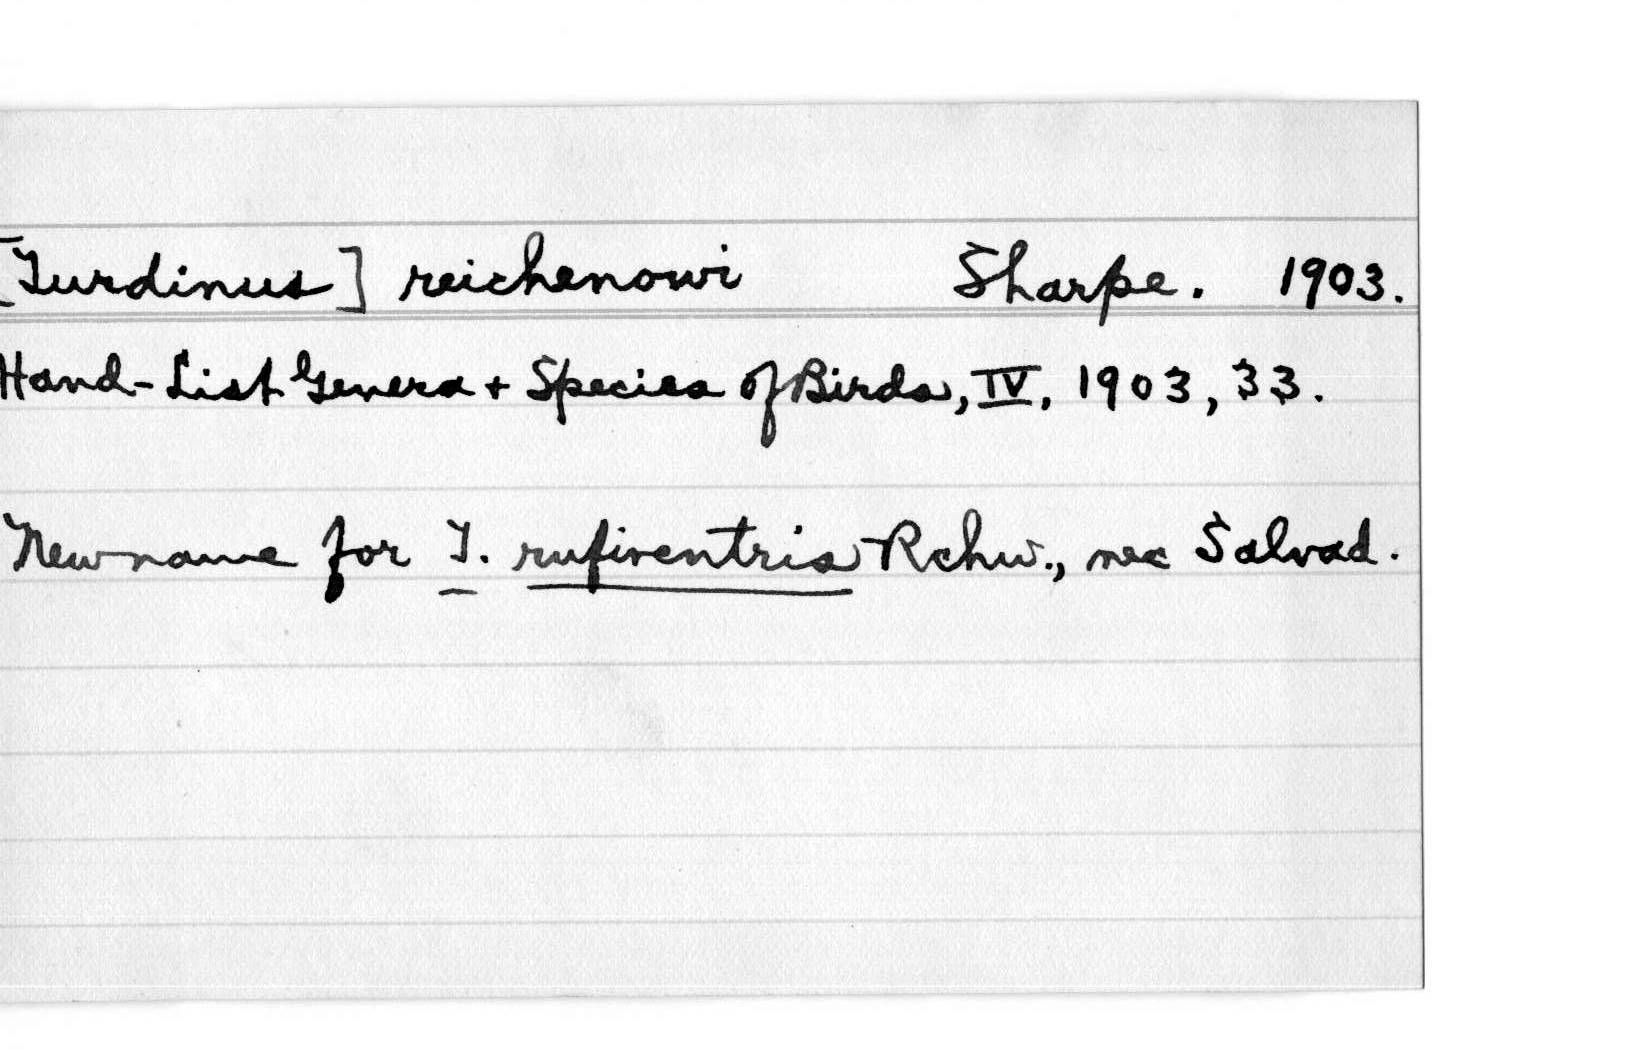 [Turdinus] reichenowi Sharpe. 1903.
Hand-List Genera + Species of Birds, IV, 1903, 33.
New name for T. rufiventris Rchw., nec Salvad.